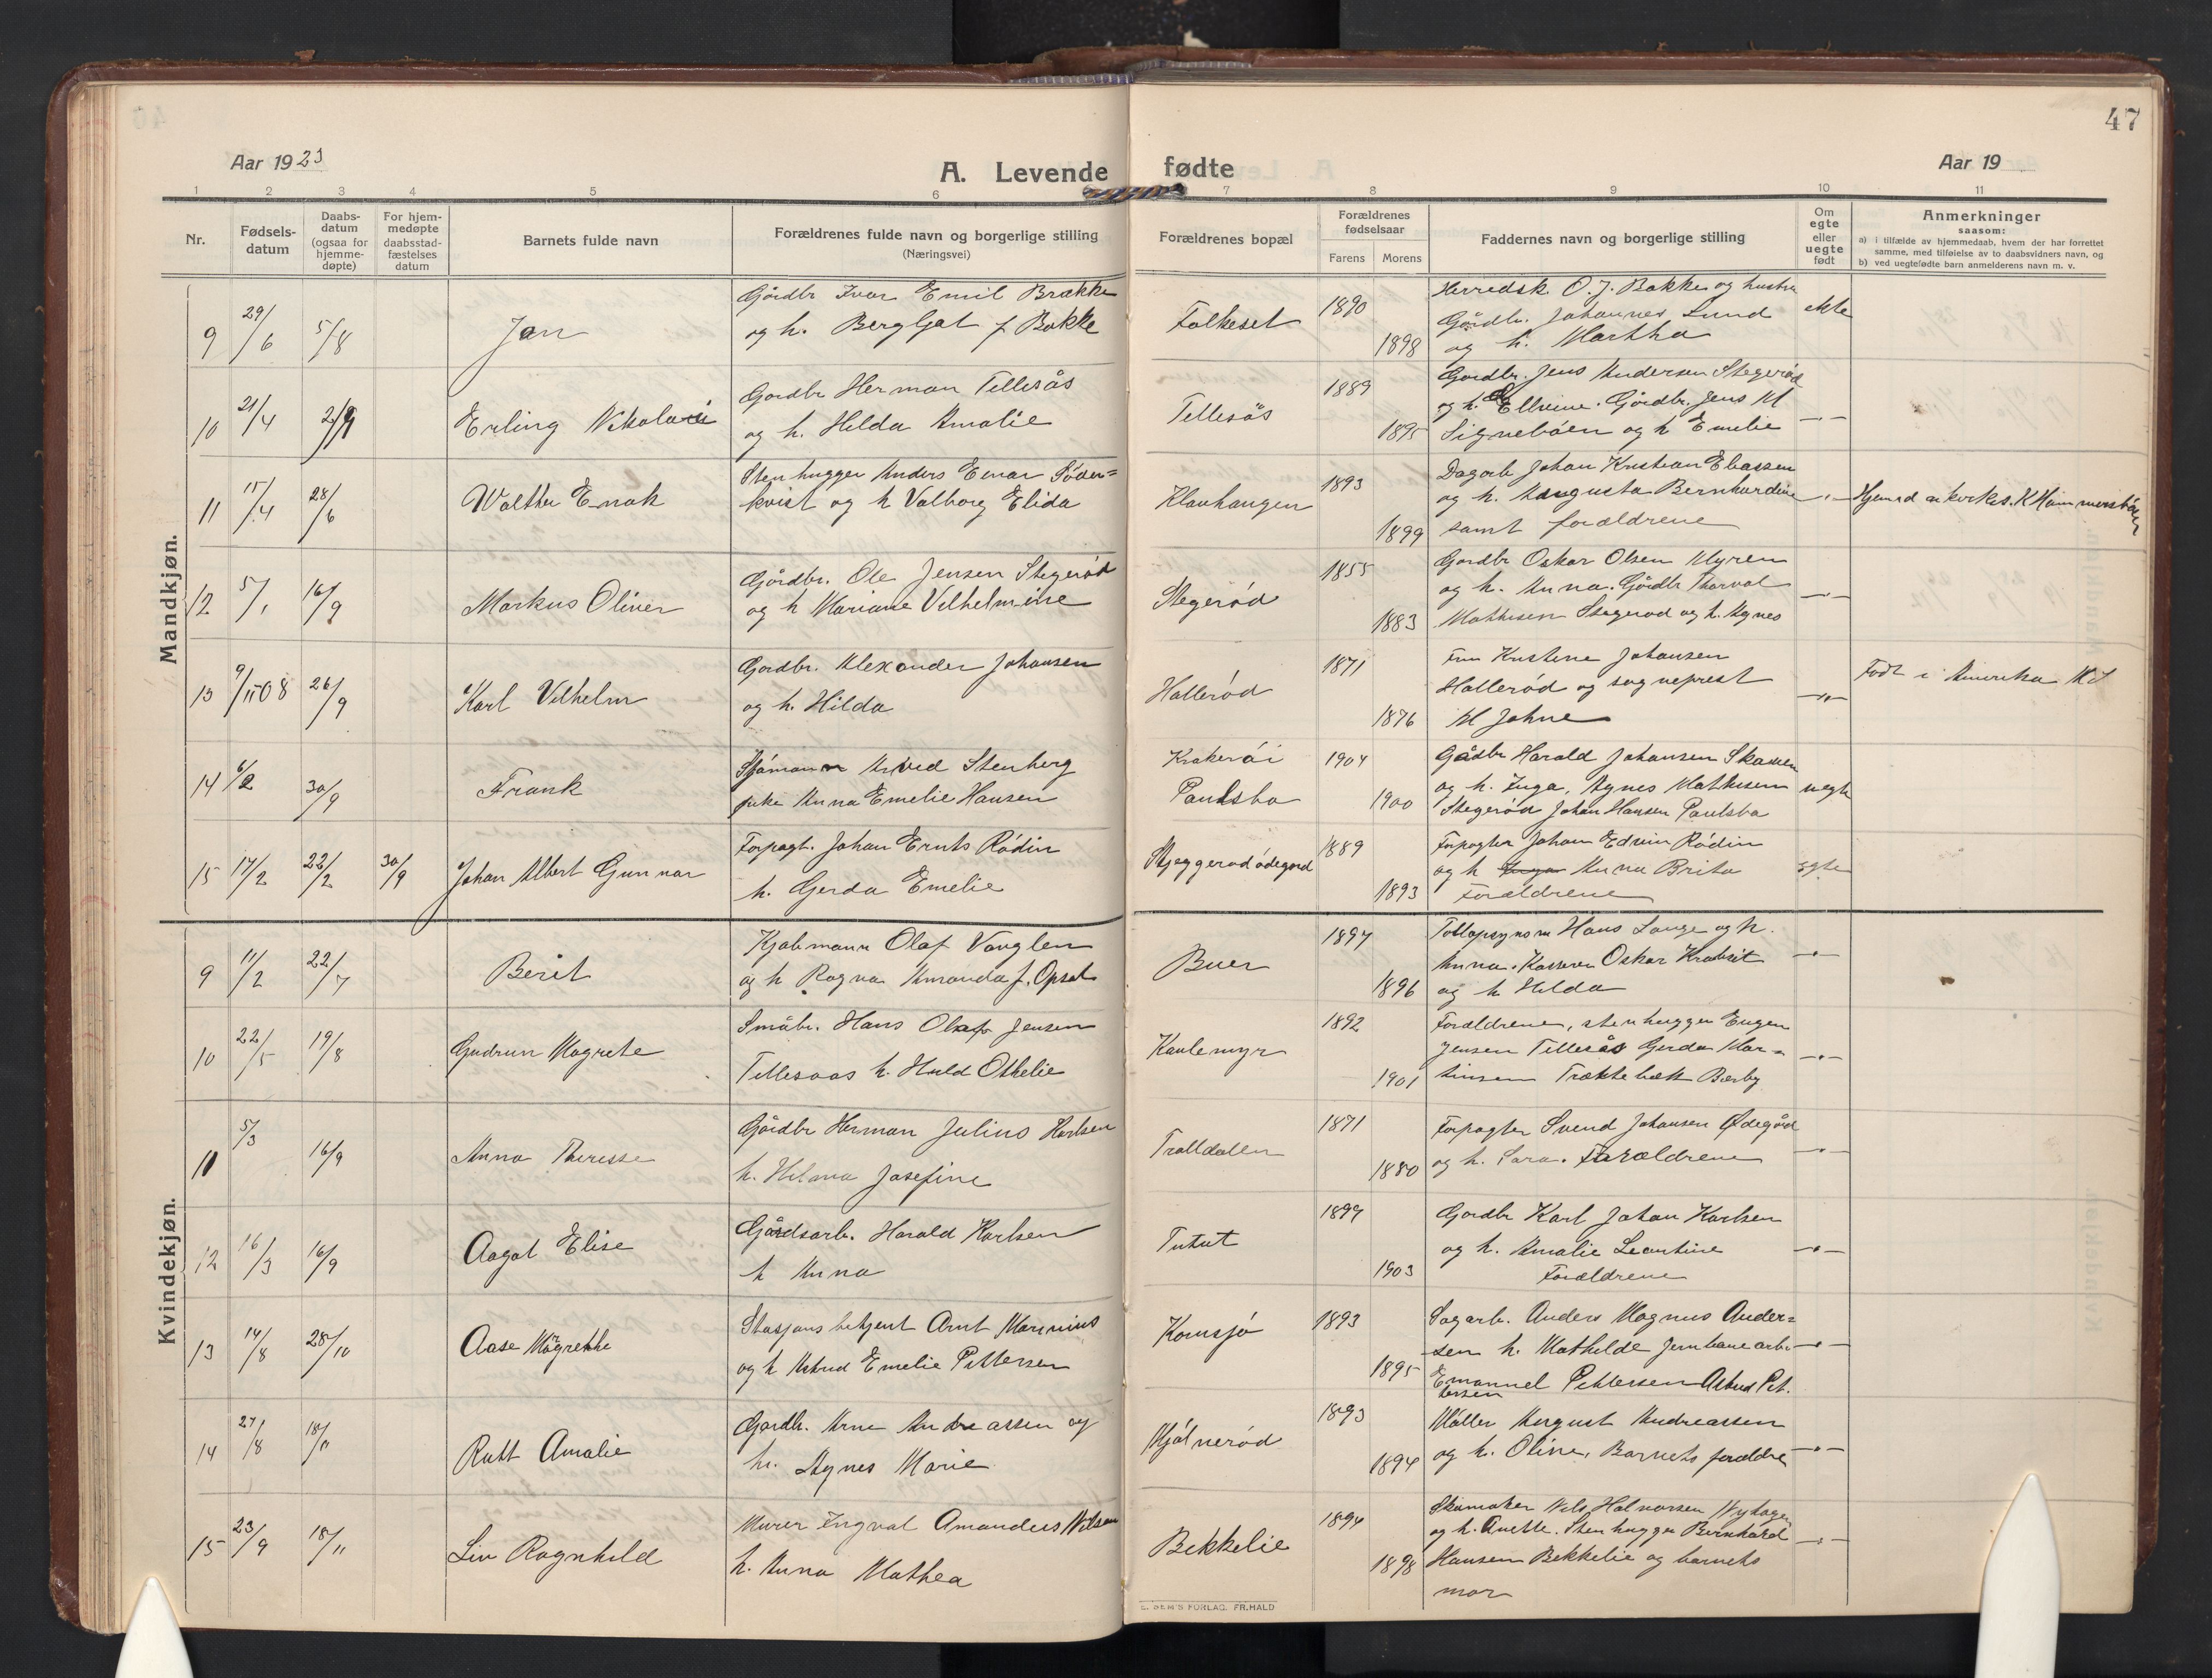 47
Aar 1923
A. Levende fødte
Aar 19
1 2 3 4 5 6 7 8 9 10 11
Nr.
Fødsels-
datum
Daabs-
datum
(ogsaa for
hjemme-
døpte)
For hjem-
medøpte
daabsstad-
fæstelses
datum
Barnets fulde navn
Forældrenes fulde navn og borgerlige stilling
(Næringsvei)
Forældrenes bopæl
Forældrenes
fødselsaar
Farens Morens
Faddernes navn og borgerlige stilling
Om
egte
eller
uegte
født
Anmerkninger
saasom:
a) i tilfælde av hjemmedaab, hvem der har forrettet
samme, med tilføielse av to daabsvidners navn, og
b) ved uegtefødte barn anmelderens navn m. v.
Mandkjøn.
9 29/6 5/8
Jan
Gårdbr Ivar Emil Brække
og h. Bergljot f Bakke
Folkeset
1890
1898
Herredsk. O. J. Bakke og hustru
Gårdbr. Johannes Lund
og h. Martha
ekte
10 21/4 2/9
Erling Nikolai
Gardbr Herman Tellesås
og h. Hilda Amalie
Tellesås
1889
1895
Gardbr. Jens Andersen Stegerød
og h. Ellevine. Gårdbr. Jens M
Signebøen og h Emelie
11 15/4 28/6
Walther Enok
Stenhugger Anders Einar Söder=
kvist og h Valborg Elida
Klavhaugen
1893
1899
Dagarb Johan Kristian Eliassen
og h. Augusta Bernhardine
samt forældrene
12 5/1 16/9
Markus Oliver
Gårdbr. Ole Jensen Stegerød
og h Mariane Vilhelmine
Stegerød
1855
1883
Gardbr Oskar Olsen Myren
og h. Anna. Gårdbr Thorval
Mathisen Stegerød og h. Agnes
13 9/11 08 26/9
Karl Vilhelm
Gardbr. Alexander Johansen
og h. Hilda
Hallerød
1871
1876
Fru Kristine Johansen
Hallerød og sogneprest
M Johne
Født i Amerika
14 6/2 30/9
Frank
Sjømann Arvid Stenberg
pike Anna Emelie Hansen
Krakerøi
Paulsbo
1904
1900
Gådbr Harald Johansen
og h. Inga, Agnes Mathisen
Stegerød Johan Hansen Paulsbo
uegte
15 17/2 22/2 30/9
Johan Albert Gunnar
Forpagt. Johan Ernts Rödin
h. Gerda Emelie
Skjeggerødödegård
1889
1893
Forpagter Johan Edvin Rödin
og h Anna Brita
Forældrene
egte
Kvindekjøn.
9 11/2 22/7
Berit
Kjøbmann Olaf Vanglen
og h Ragna Amanda f. Opsal
Buer
1894
1896
Tollopsynsm Hans Lange og h.
Anna. Kasserer Oskar
og h Hilda
10 22/5 19/8
Gudrun Magrete
Småbr. Hans Olaf Jensen
Tellesaas h. Huld Othelie
Kaulemyr
1892
1901
Forældrene, stenhugger Eugen
Jensen Tellesås Gerda Mar=
tinsen Træktebæk Bærby
11 5/3 16/9
Anna Theresse
Gårdbr Herman Julius Karlsen
h. Helena Josefine
Trolldalen
1871
1880
Forpagter Svend Johansen Ødegård
og h. Sara. Forældrene
12 16/3 16/9
Aagot Elise
Gårdsarb. Harald Karlsen
h Anna
Tutut
1899
1903
Gardbr Karl Johan Karlsen
og h. Amalie Leontine
Forældrene
13 14/8 28/10
Aase Magrethe
Stasjons betjent Arnt Marinius
og h Astrud Emelie Pettersen
Kornsjø
1893
1895
Sagarb. Anders Magnus Ander=
sen h. Mathilde Jernbanearb.
Emanuel Pettersen Astrud Pet.
tersen
14 27/8 18/11
Rutt Amalie
Gardbr. Arne Andreassen og
h. Agnes Marie
Mjølnerød
1893
1894
Møller August Andreassen
og h. Oline, Barnets forældre
15 23/9 18/11
Liv Ragnhild
Murer Ingval Amandus Nilsen
h. Anna Mathea
Bekkelie
1894
1898
Skomaker Nils Halvorsen Nyhagen
og h. Anette. Stenhugger Bernhard
Hansen Bekkelie og barnets
mor
E. SEM'S FORLAG. FR.HALD